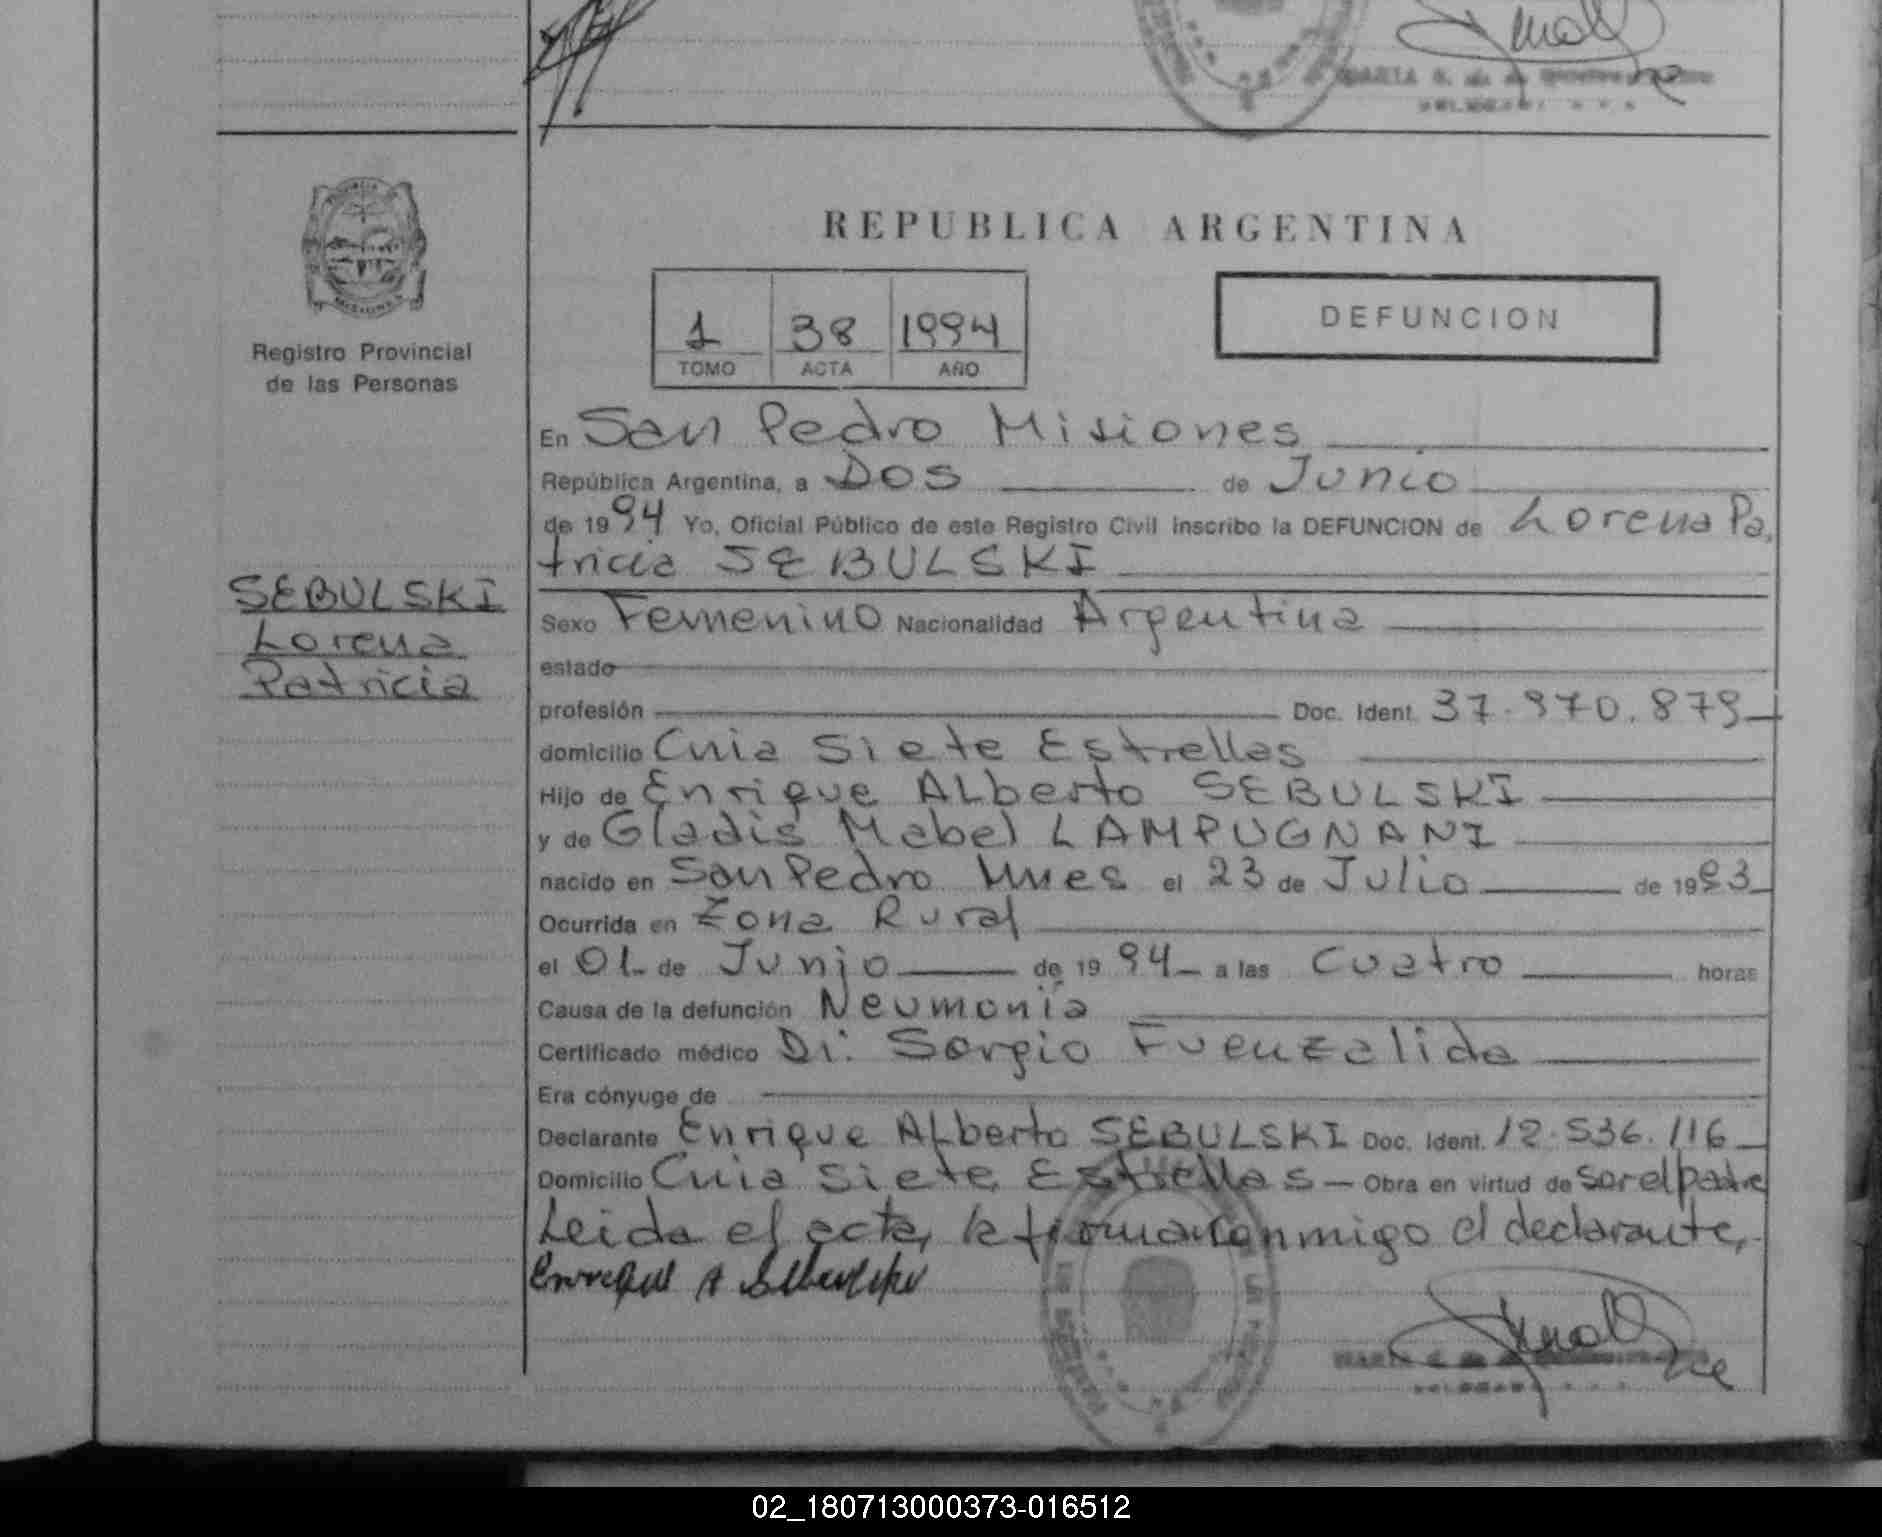 REPUBLICA ARGENTINA
Registro Provincial
de las Personas
1 38 1994
TOMO ACTA AÑO
DEFUNCION
SEBULSKI
Lorena
Patricia
En San Pedro Misiones
República Argentina, a Dos de Junio
de 1994 Yo, Oficial Público de este Registro Civil inscribo la DEFUNCION de Lorena Pa,
tricia SEBULSKI
Sexo Femenino Nacionalidad Argentina
estado
profesión Doc. Ident. 37.970.879
domicilio Cnia Siete Estrellas
Hijo de Enrique Alberto SEBULSKI
y de Gladis Mabel LAMPUGNANI
nacido en San Pedro Mnes el 23 de Julio de 1993
Ocurrida en Zona Rural
el 01 de Junio de 1994 a las Cuatro horas
Causa de la defunción Neumonía
Certificado médico Dr: Sergio Fuenzalida
Era cónyuge de
Declarante Enrique Alberto SEBULSKI Doc. Ident. 12.536.116
Domicilio Cnia Siete Estrellas Obra en virtud de ser el padre
Leida el acta, la firma conmigo el declarante,
02_180713000373-016512